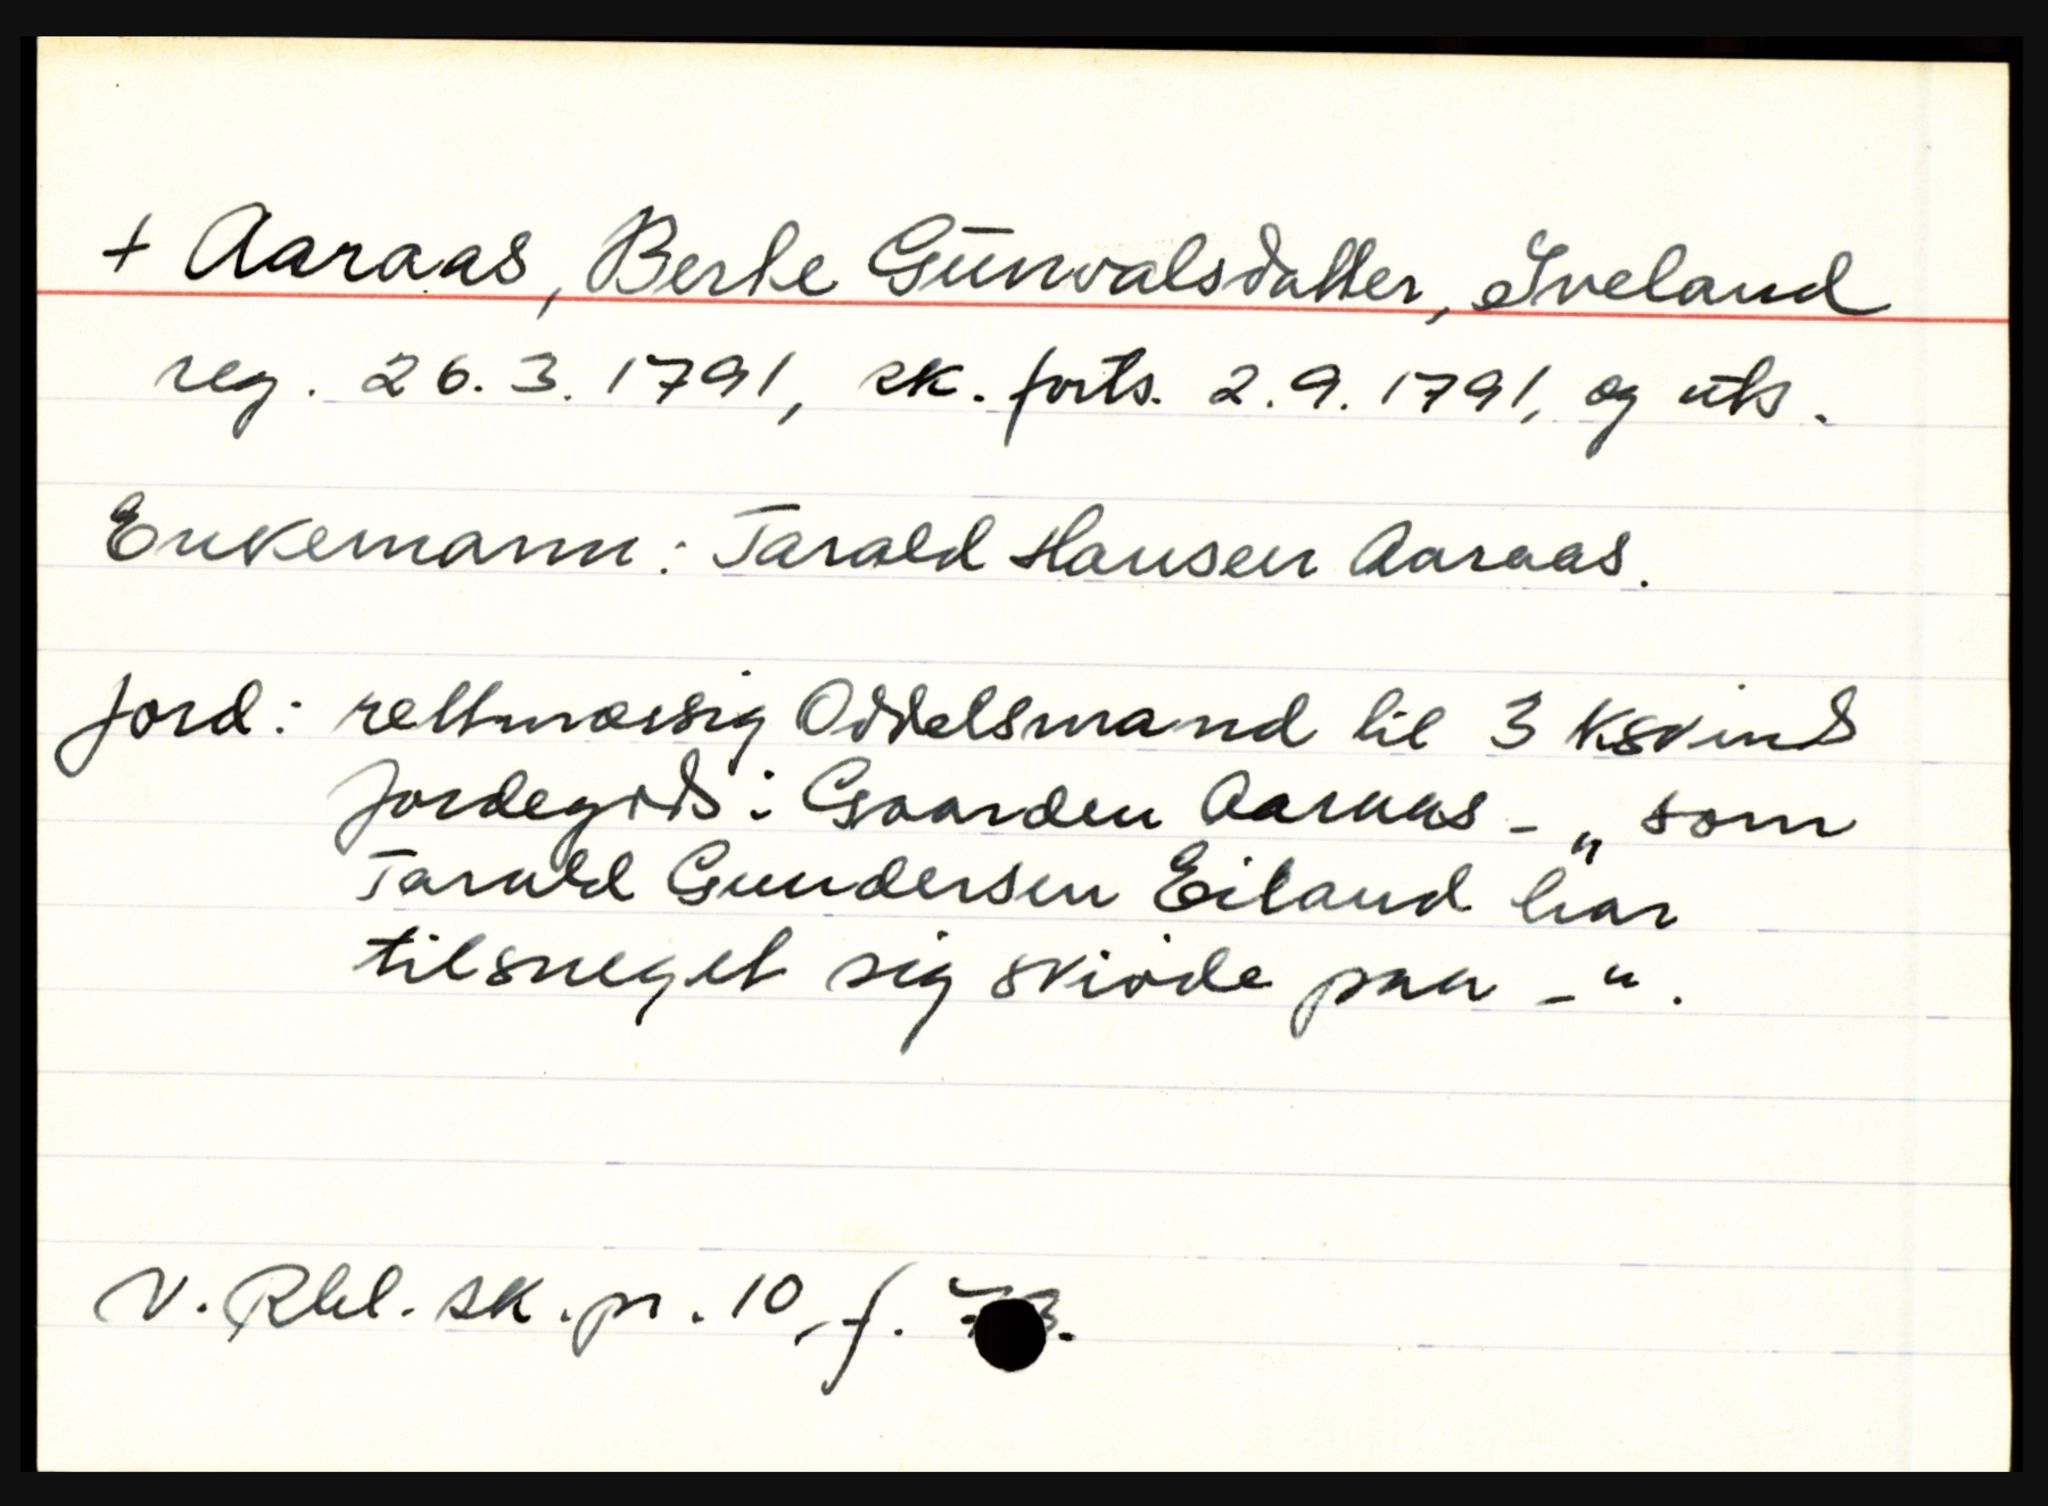 + Aaraas, Berte Gūnvalsdatter, Iveland
reg. 26.3.1791, sk. forts. 2.9.1791, og uts.
Enkemann: Tarald Hansen Aaraas.
Jord: rettmæssig Oddelsmand til 3 kskinds
Jordegods i Gaarden Aaraas - „ som
Tarald Gundersen Eiland har
tilsneget sig skiøde paa - “.
V. Rbl. sk. pr. 10, f.